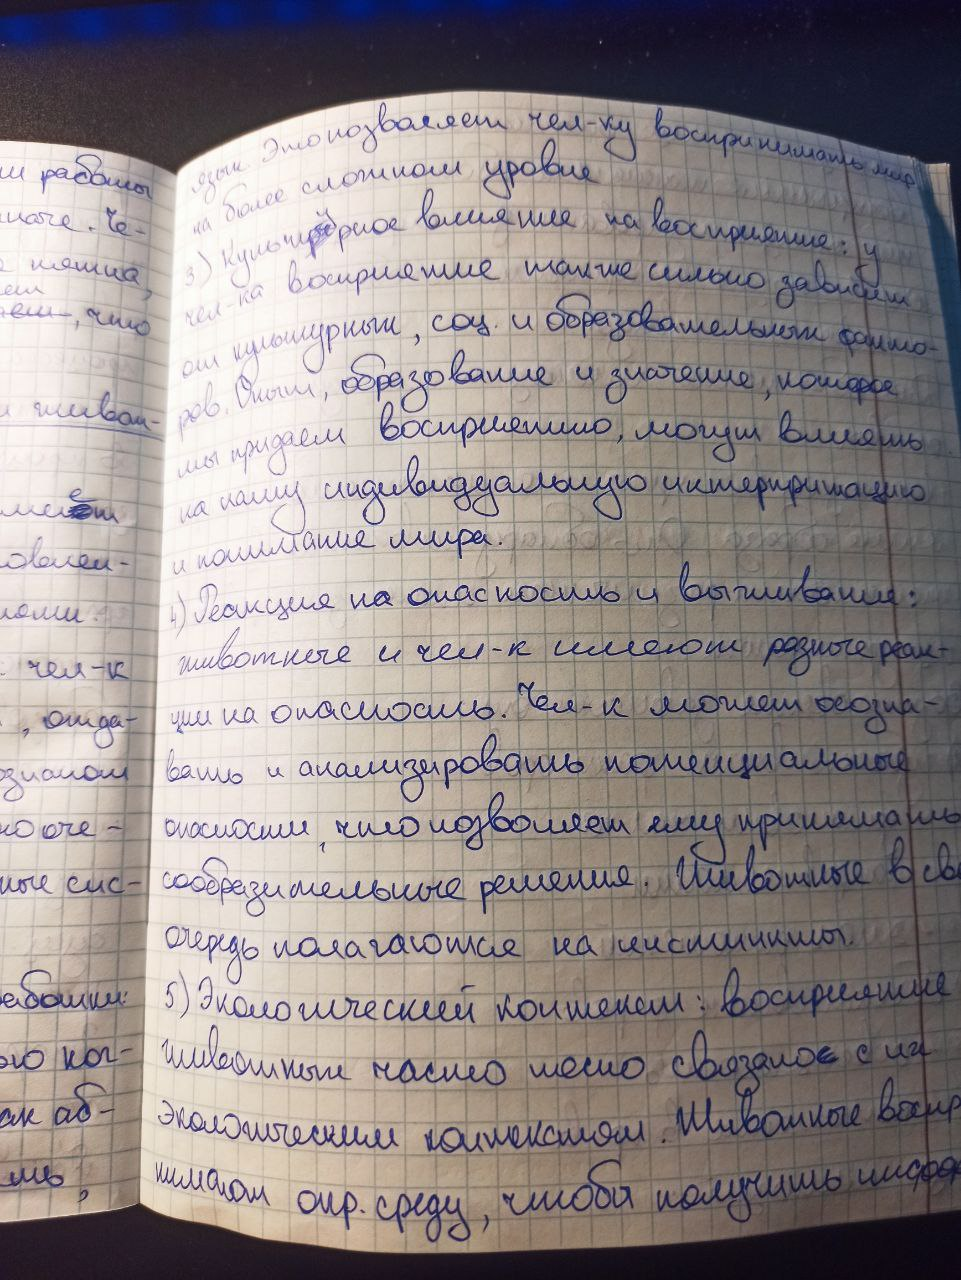 ии работы
иначе. Че-
е пятна,
ет
, что
и живот-
е
овлен-
ями.
чел-к
, отда-
ознаком
но оче-
ные сис-
работки:
ого ког-
как аб-
ть,
язык. Это позволяет чел-ку воспринимать мир
на более сложном уровне
3) Культурное влияние на восприятие: у
чел-ка восприятие также сильно зависит
от культурных, соц. и образовательных факто-
ров. Опыт, образование и значение, которое
мы придаем восприятию, могут влиять
на нашу индивидуальную интерпритацию
и понимание мира.
4) Реакция на опасность и выживание:
животные и чел-к имеют разные реак-
ции на опасность. Чел-к может осозна-
вать и анализировать потенциальные
опасности, что позволяет ему принимать
сообразительные решения. Животные в сво
очередь полагаются на инстинкты.
5) Экологический контекст: восприятие
животных часто тесно связано с их
экологическим контекстом. Животные воспр
нимают окр. среду, чтобы получить инфор